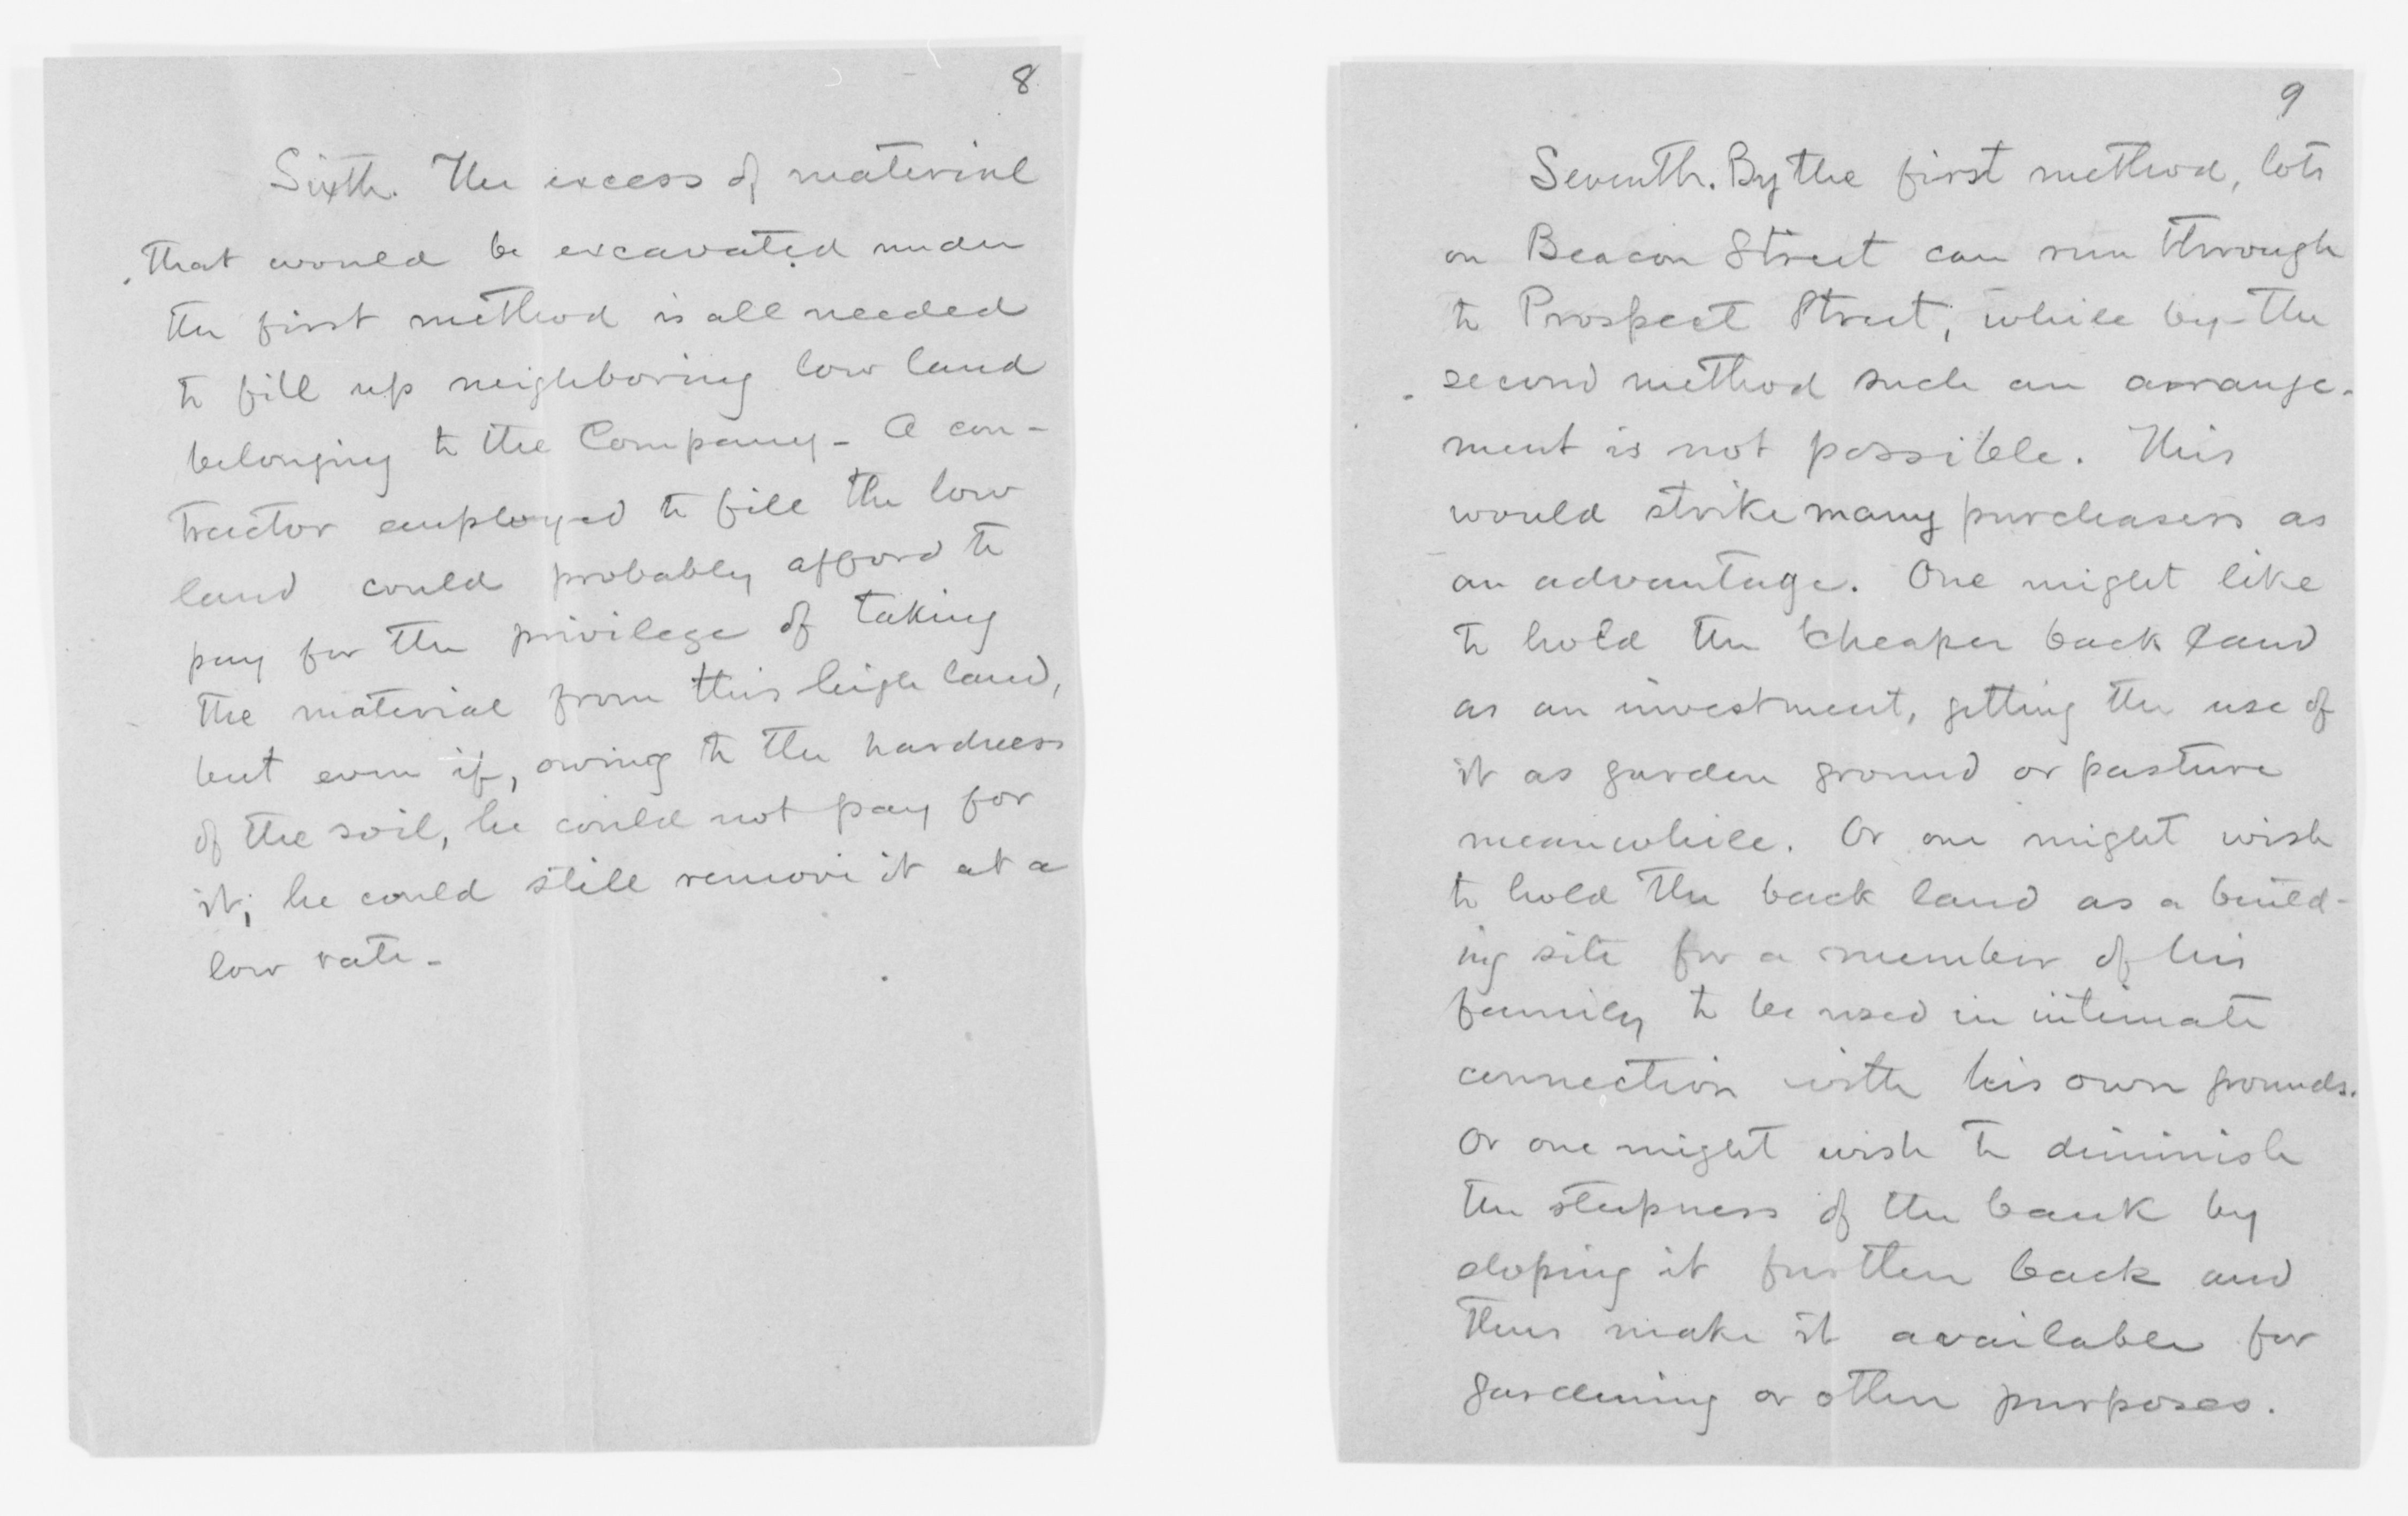 8
Sixth. The excess of material
that would be excavated under
the first method is all needed
to fill up neighboring low land
belonging to the Company - A con-
tractor employed to fill the low
land could probably afford to
pay for the privilege of taking
the material from this high land,
but even if, owing to the hardness
of the soil, he could not pay for
it; he could still remove it at a
low rate -
9
Seventh. By the first method, lots
on Beacon Street can run through
to Prospect Street, while by the
second method such an arrange-
ment is not possible. This
would strike many purchasers as
an advantage. One might like
to hold the cheaper back land
as an investment, getting the use of
it as garden ground or pasture
meanwhile. Or one might wish
to hold the back land as a build-
ing site for a member of his
family to be used in intimate
connection with his own grounds.
Or one might wish to diminish
the steepness of the bank by
sloping it further back and
thus make it available for
gardening or other purposes.